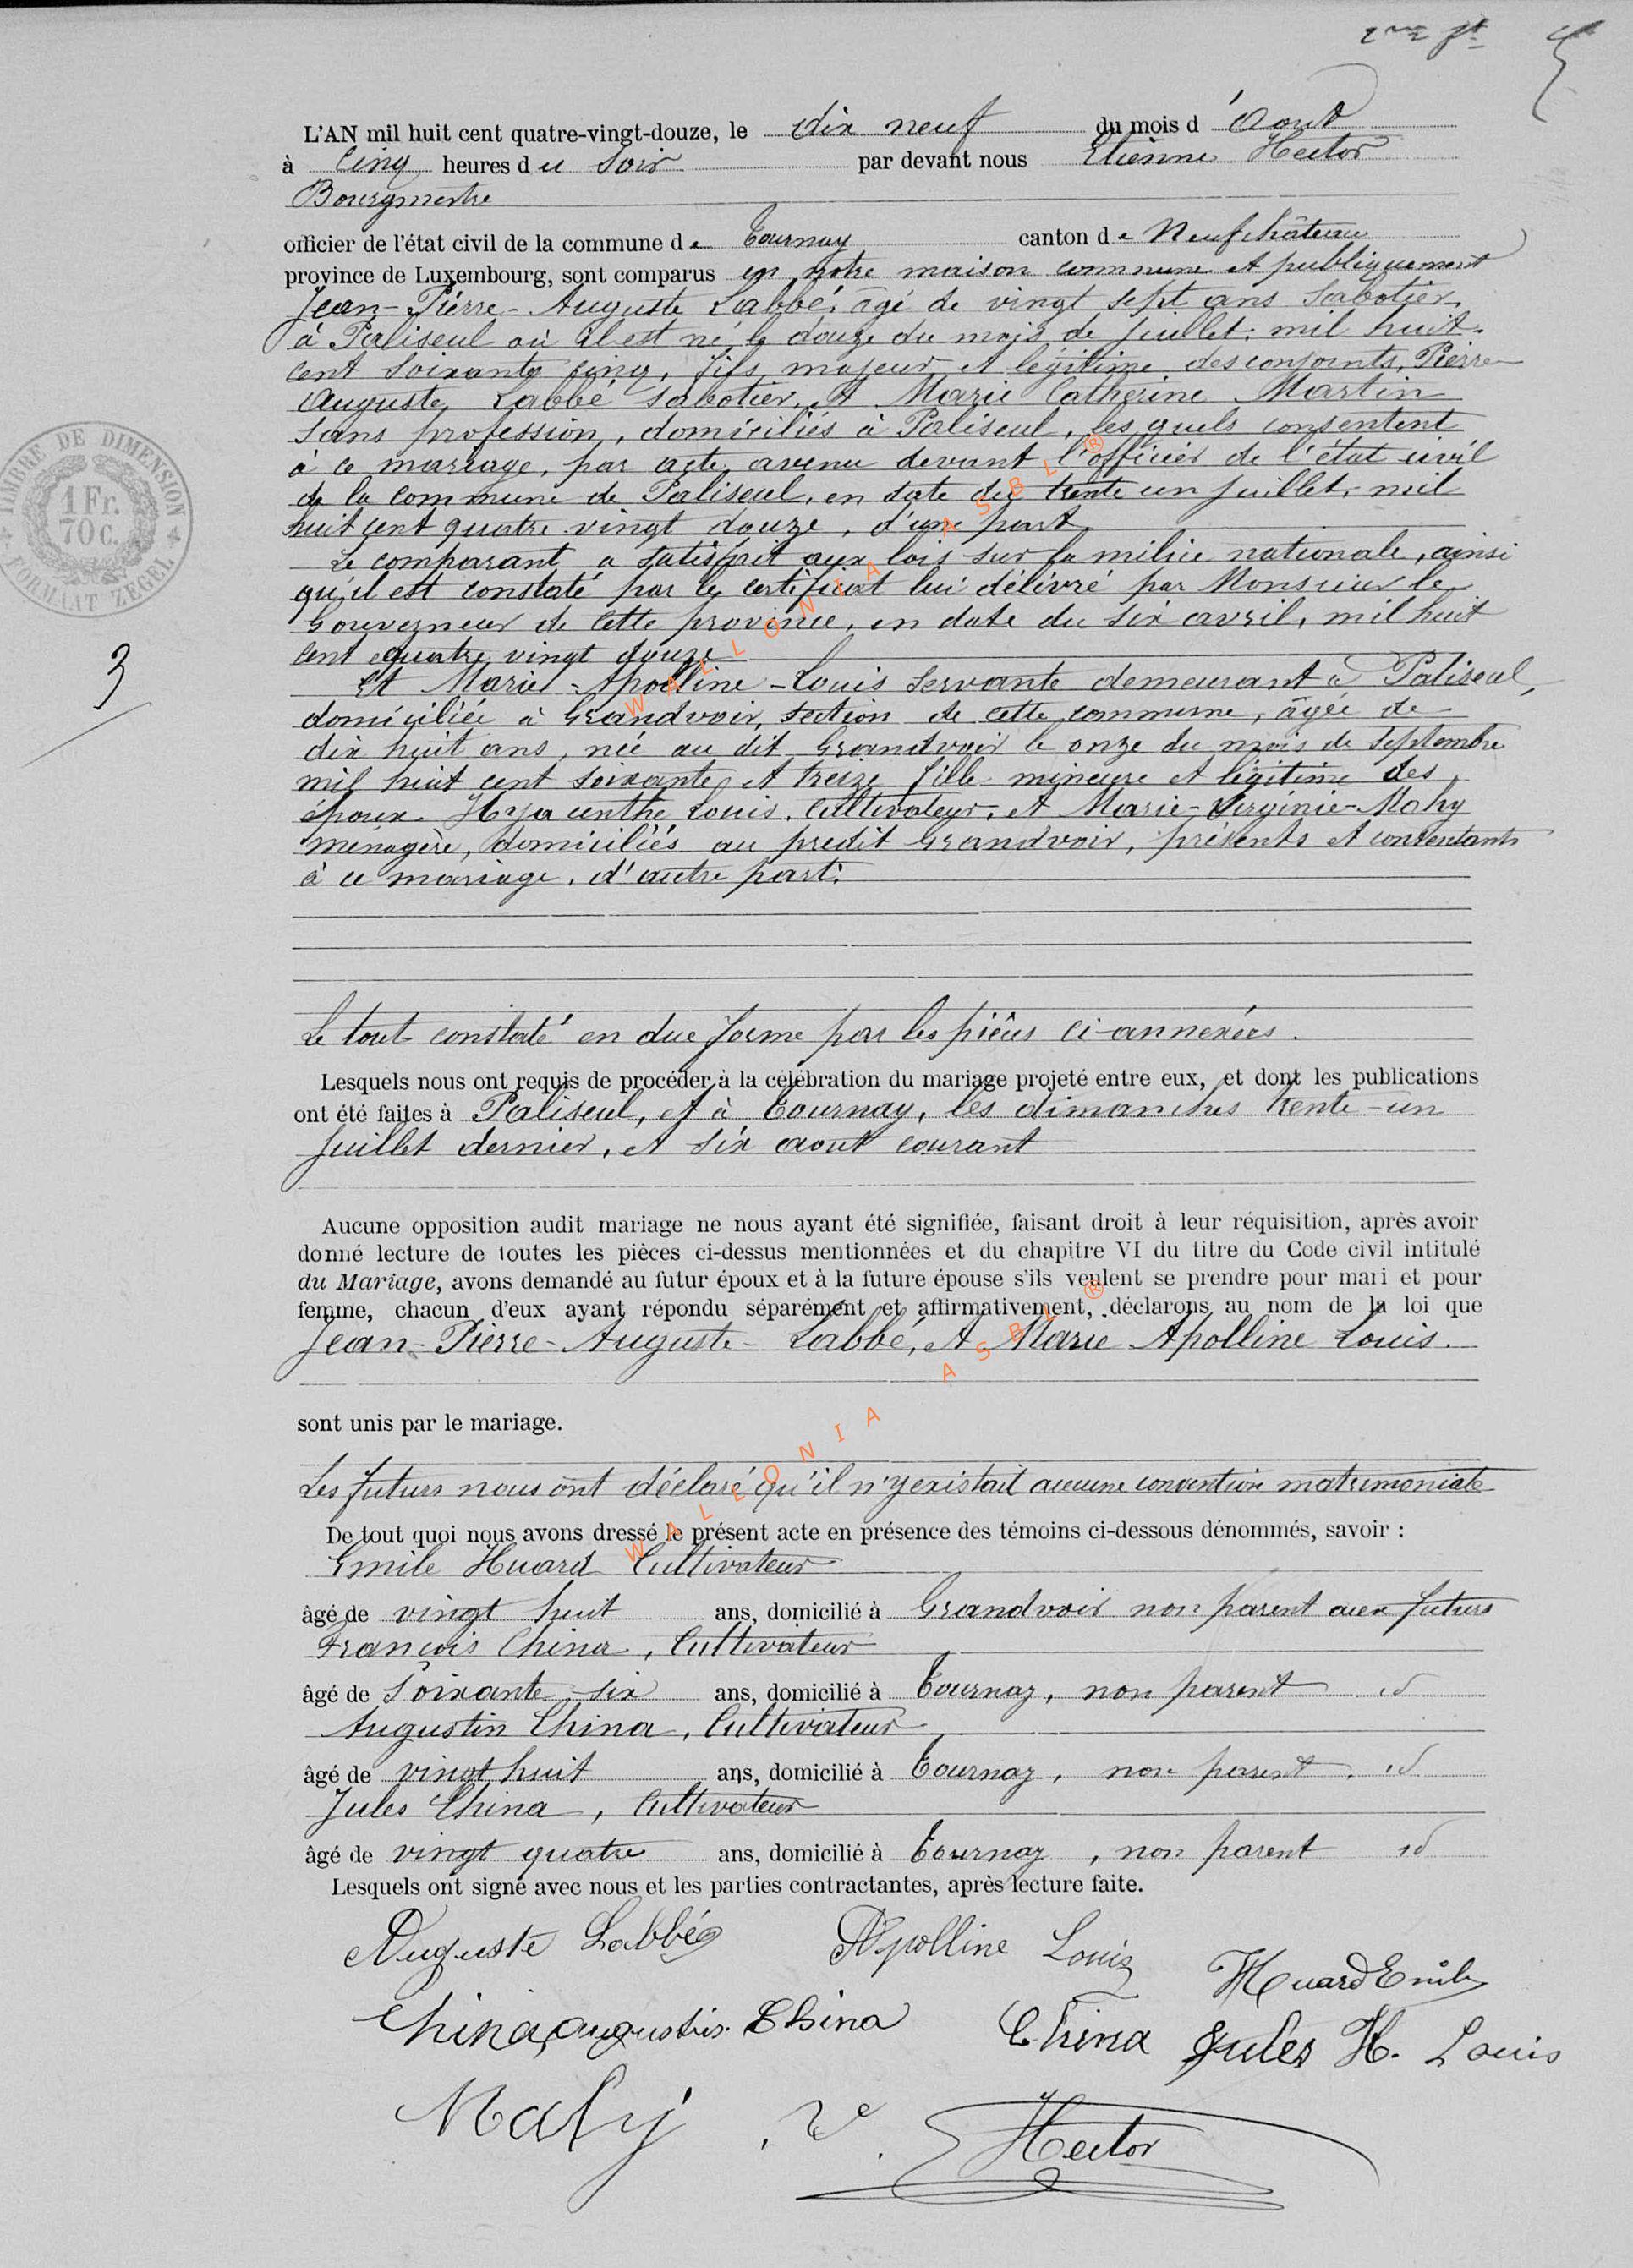 2me ft
L'AN mil huit cent quatre-vingt-douze, le dix neuf du mois d'Aout
à Cinq heures du Soir par devant nous Etienne Hector
Bourgmestre
officier de l'état civil de la commune de Tournay canton de Neufchâteau
province de Luxembourg, sont comparus en notre maison commune et publiquement
Jean-Pierre-Auguste Labbé, âgé de vingt sept ans Sabotier
à Paliseul où il est né le douze du mois de juillet, mil huit
cent Soixante cinq, fils majeur et légitime des conjoints, Pierre
Auguste Labbé Sabotier, et Marie Catherine Martin
Sans profession, domiciliés à Paliseul, les quels consentent
à ce mariage, par acte avenu devant l'officier de l'état civil
de la commune de Paliseul, en date du trente un juillet, mil
huit cent quatre vingt douze, d'une part,
Le comparant a satisfait aux lois sur la milice nationale, ainsi
qu'il est constaté par le certificat lui délivré par Monsieur le
Gouverneur de Cette province, en date du six avril, mil huit
cent quatre vingt douze
Et Marie-Apolline-Louis Servante demeurant à Paliseul,
domiciliée à Grandvoir, section de cette commune, âgée de
dix huit ans, née au dit Grandvoir le onze du mois de Septembre
mil huit cent soixante et treize fille mineure et légitime des
époux Hyacinthe Louis, Cultivateur, et Marie-Virginie-Mahy
ménagère, domiciliés au predit Grandvoir, présents et consentants
à ce mariage, d'autre part.
Le tout constaté en due forme par les pièces ci-annexées.
Lesquels nous ont requis de procéder à la célébration du mariage projeté entre eux, et dont les publications
ont été faites à Paliseul, et à Tournay, les dimanches trente-un
Juillet dernier, et six aout courant
Aucune opposition audit mariage ne nous ayant été signifiée, faisant droit à leur réquisition, après avoir
donné lecture de toutes les pièces ci-dessus mentionnées et du chapitre VI du titre du Code civil intitulé
du Mariage, avons demandé au futur époux et à la future épouse s'ils veulent se prendre pour mari et pour
femme, chacun d'eux ayant répondu séparément et affirmativement, déclarons au nom de la loi que
Jean-Pierre-Auguste-Labbé, et Marie Apolline Louis.
sont unis par le mariage.
Les futurs nous ont déclaré qu'il n'y existait aucune convention matrimoniale
De tout quoi nous avons dressé le présent acte en présence des témoins ci-dessous dénommés, savoir :
Emile Huard Cultivateur
âgé de vingt huit ans, domicilié à Grandvoir non parent aux futurs
François China, Cultivateur
âgé de Soixante-six ans, domicilié à Tournay, non parent id
Augustin China, Cultivateur
âgé de vingt huit ans, domicilié à Tournay, non parent, id
Jules China, Cultivateur
âgé de vingt quatre ans, domicilié à Tournay, non parent id
Lesquels ont signé avec nous et les parties contractantes, après lecture faite.
Auguste Labbé Apolline Louis Huard Emile
China, augustin China China Jules H. Louis
Mahy. Ve. Hector
TIMBRE DE DIMENSION
1 Fr.
70 C.
FORMAAT ZEGEL
3
WALLONIA ASBL ®
WALLONIA ASBL ®